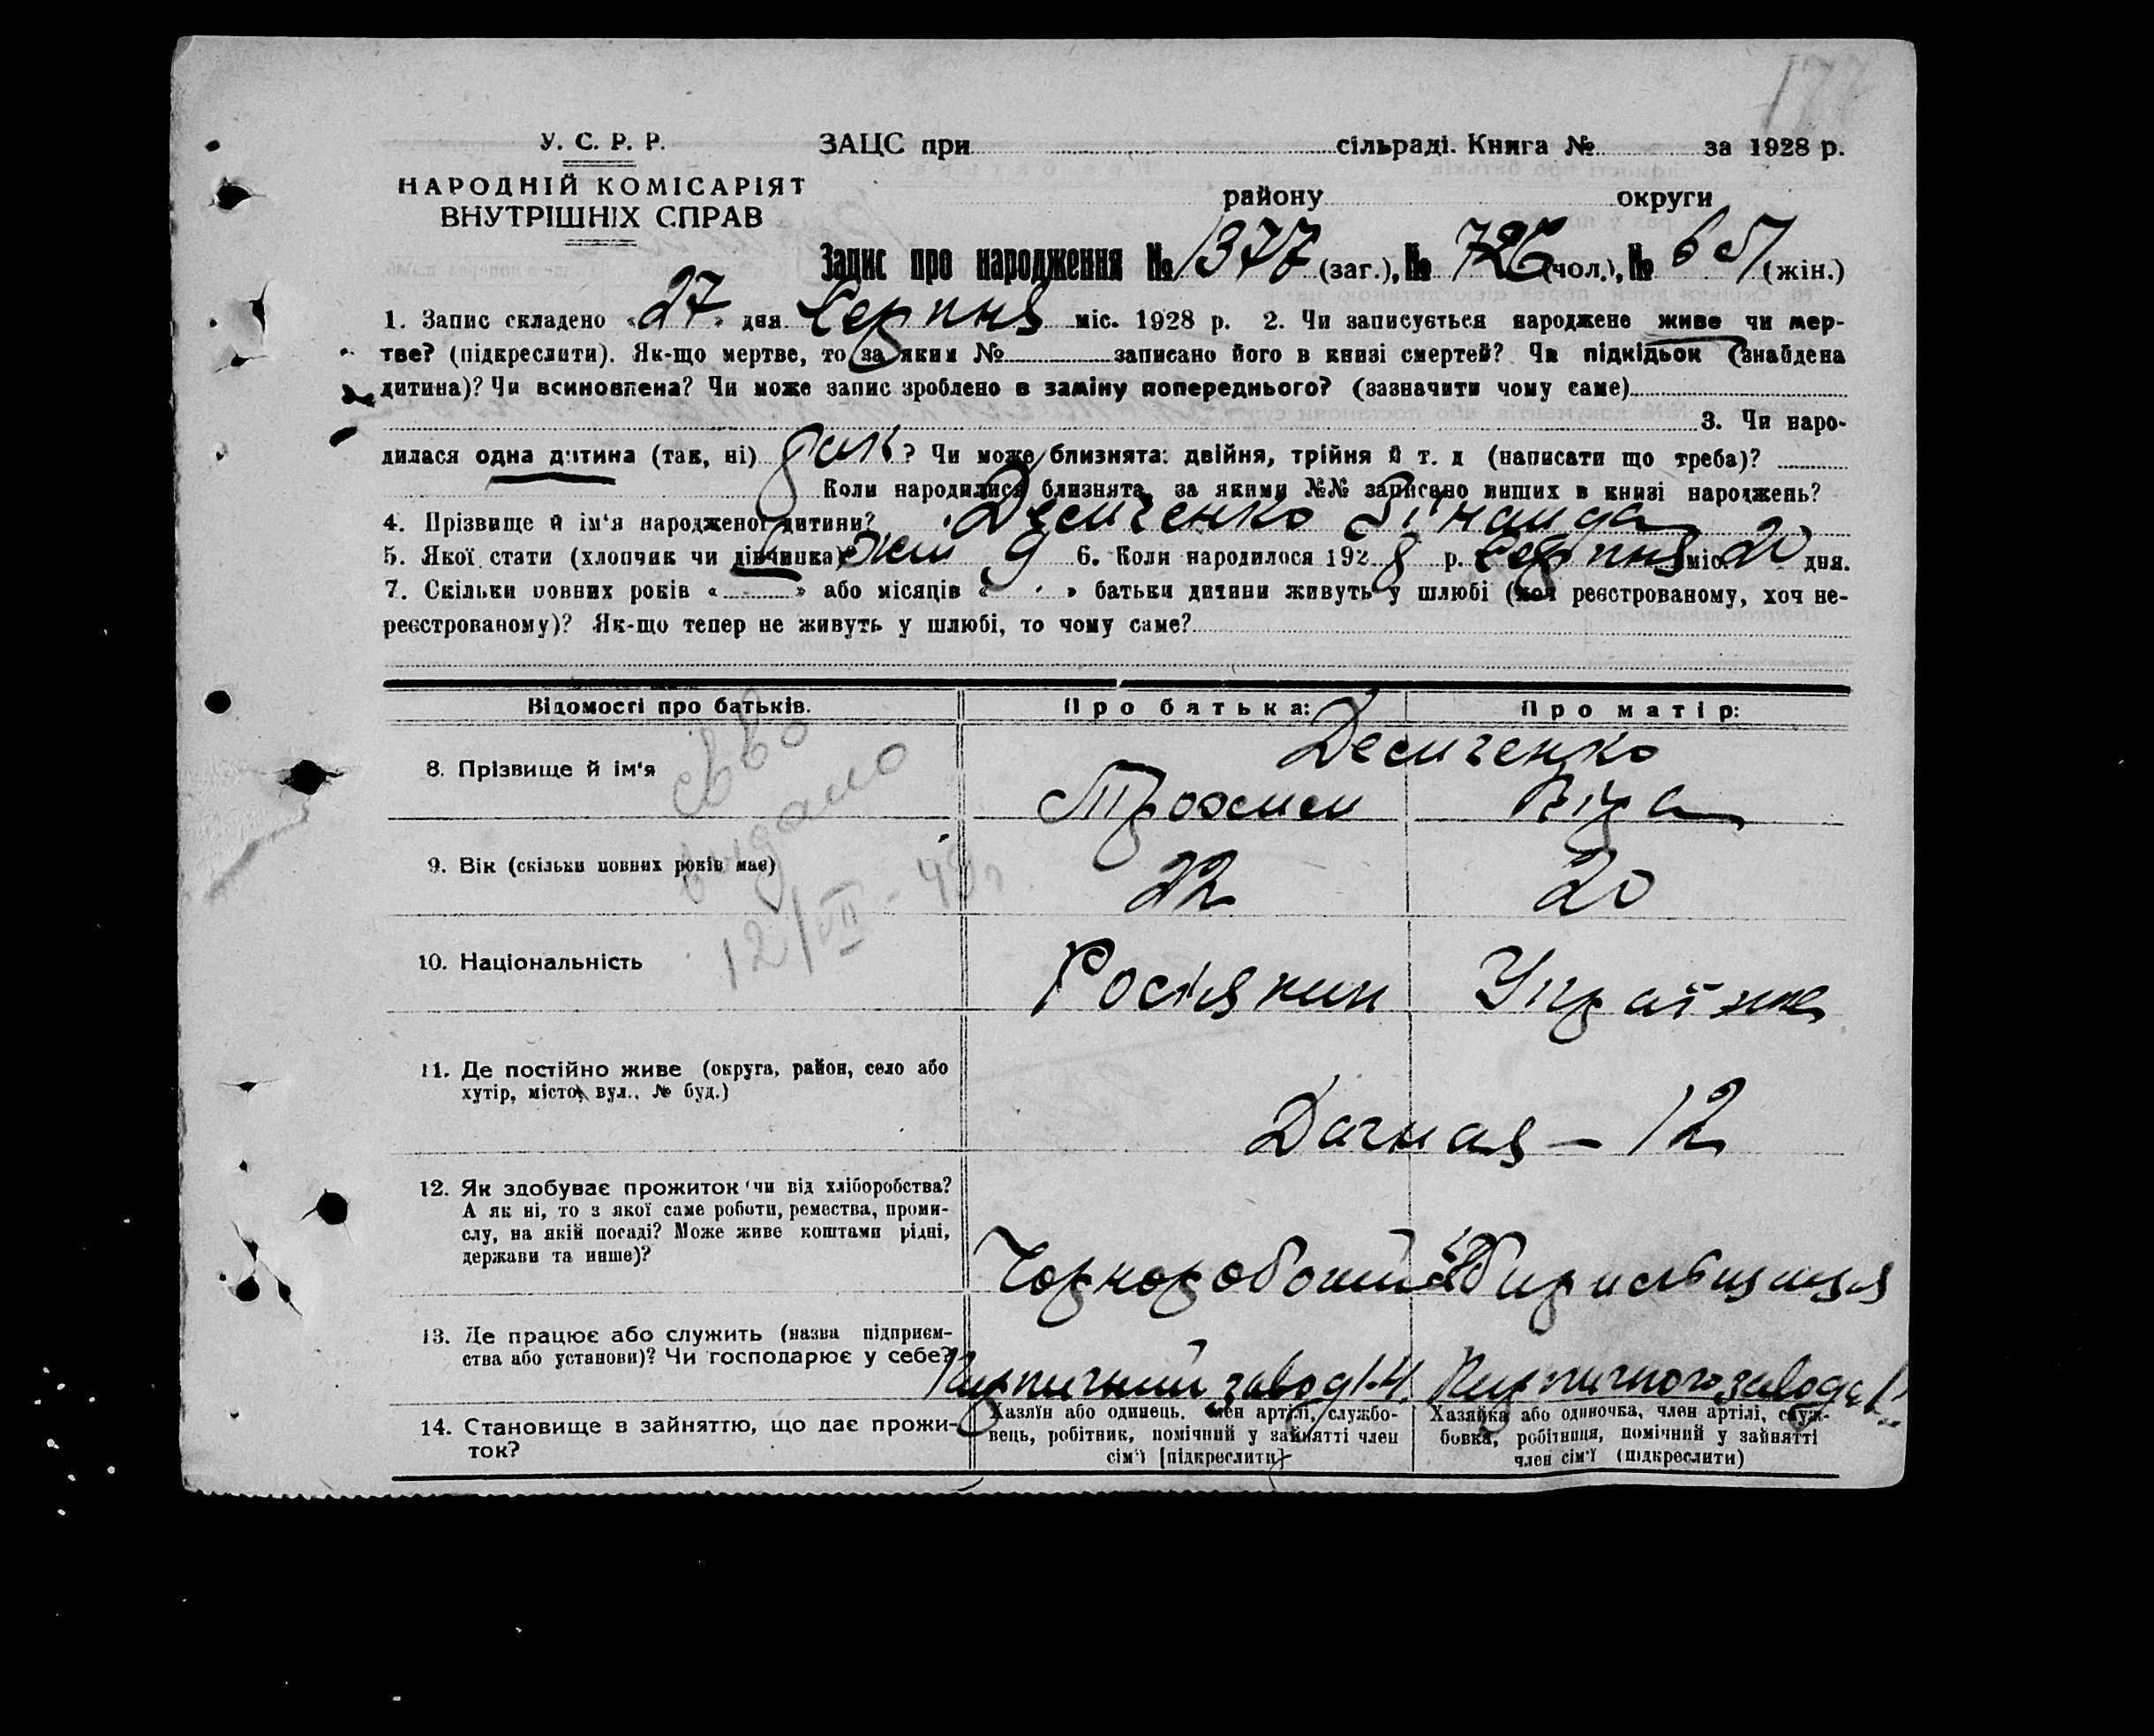 У. С. Р. Р.
НАРОДНІЙ КОМІСАРІЯТ
ВНУТРІШНІХ СПРАВ
ЗАЦС при сільраді. Книга № за 1928 р.
району округи
Запис про народження № 1377 (заг.), № 726 (чол.), № 651 (жін.)
1. Запис складено «27» дня Серпня міс. 1928 р. 2. Чи записується народжене живе чи мер-
тве? (підкреслити). Як-що мертве, то за яким № записано його в книзі смертей? Чи підкідьок (знайдена
дитина)? Чи всиновлена? Чи може запис зроблено в заміну попереднього? (зазначити чому саме)
3. Чи наро-
дилася одна дитина (так, ні) ? Чи може близнята: двійня, трійня й т. д (написати що треба)?
Коли народилися близнята, за якими №№ записано инших в книзі народжень?
4. Прізвище й ім'я народженої дитини? Демиченко
5. Якої стати (хлопчик чи дівчинка)? 6. Коли народилося 1928 р. Серпня міс. 20 дня.
7. Скільки повних років « » або місяців « » батьки дитини живуть у шлюбі (хоч реєстрованому, хоч не-
реєстрованому)? Як-що тепер не живуть у шлюбі, то чому саме?
Відомості про батьків. Про батька: Про матір:
8. Прізвище й ім'я Демиченко
Трохим
св во
видано
12/VII - 49 г.
9. Вік (скільки повних років має) 22 20
10. Національність Росіянин Українка
11. Де постійно живе (округа, район, село або
хутір, місто, вул., № буд.)
Дачная – 12
12. Як здобуває прожиток чи від хліборобства?
А як ні, то з якої саме роботи, ремества, проми-
слу, на якій посаді? Може живе коштами рідні,
держави та инше)?
Чорноробочий
13. Де працює або служить (назва підприєм-
ства або установи)? Чи господарює у себе?
Кирпичний завод Кирпичного завода
14. Становище в зайняттю, що дає прожи-
ток?
Хазяїн або одинець, член артілі, службо-
вець, робітник, помічний у зайнятті член
сім'ї [підкреслити)
Хазяйка або одиночка, член артілі, служ-
бовка, робітниця, помічний у зайнятті
член сім'ї (підкреслити)